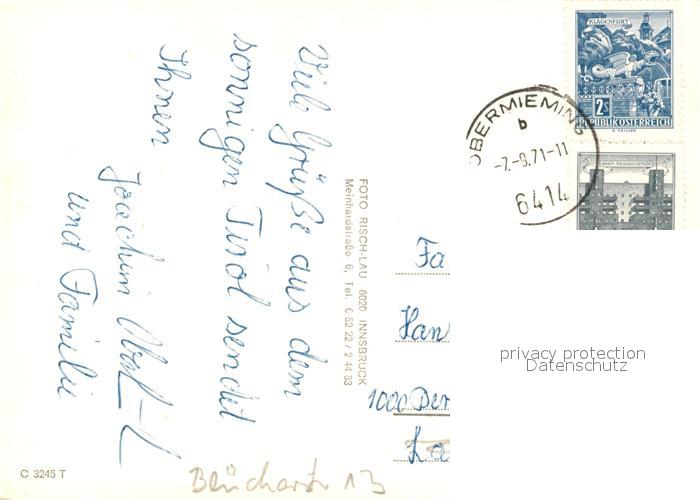 Viele Grüße aus dem
sonnigen Tirol sendet
Ihnen
Joachim
und Familie
FOTO RISCH-LAU 6020 INNSBRUCK
Meinhardstraße 6, Tel. 0 52 22 / 2 44 33
KLAGENFURT
2S
REPUBLIK ÖSTERREICH
OBERMIEMING
b
-7.-9.71-11
6414
Fa
Han
1000 Ber
La
privacy protection
Datenschutz
Blücherstr 13
C 3245 T